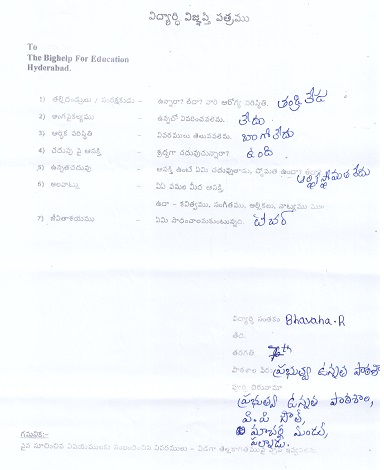 విద్యార్థి విజ్ఞప్తి పత్రము
To
The Bighelp For Education
Hyderabad.
1) తల్లిదండ్రులు / సంరక్షకుడు - ఉన్నారా? లేదా? వారి ఆరోగ్య పరిస్థితి. తండ్రి లేడు
2) అంగవైకల్యము - ఉన్నచో వివరించవలెను. లేదు
3) ఆర్థిక పరిస్థితి - వివరములు తెలుపవలెను. బాగోలేదు
4) చదువు పై ఆసక్తి - శ్రద్ధగా చదువుచున్నారా? ఉంది
5) ఉన్నతచదువు - ఆసక్తి ఉంటే ఏమి చదువుతారు, స్తోమత ఉందా? ఆర్థిక స్తోమత లేదు
6) అలవాట్లు - ఏఏ పనుల మీద ఆసక్తి.
ఉదా - కవిత్వము, సంగీతము, అల్లికలు, నాట్యము
7) జీవితాశయము - ఏమి సాధించాలనుకుంటున్నారు. టీచర్
విద్యార్థి సంతకం Bhavana-R
తేది.
తరగతి 7th
పాఠశాల పేరు ప్రభుత్వ ఉన్నత పాఠశాల
పూర్తి చిరునామా
ప్రభుత్వ ఉన్నత పాఠశాల,
వి.పి సౌత్,
మాచర్ల మండల్,
పల్నాడు.
గమనిక:-
పైన సూచించిన విషయములకు సంబంధించిన వివరములు -